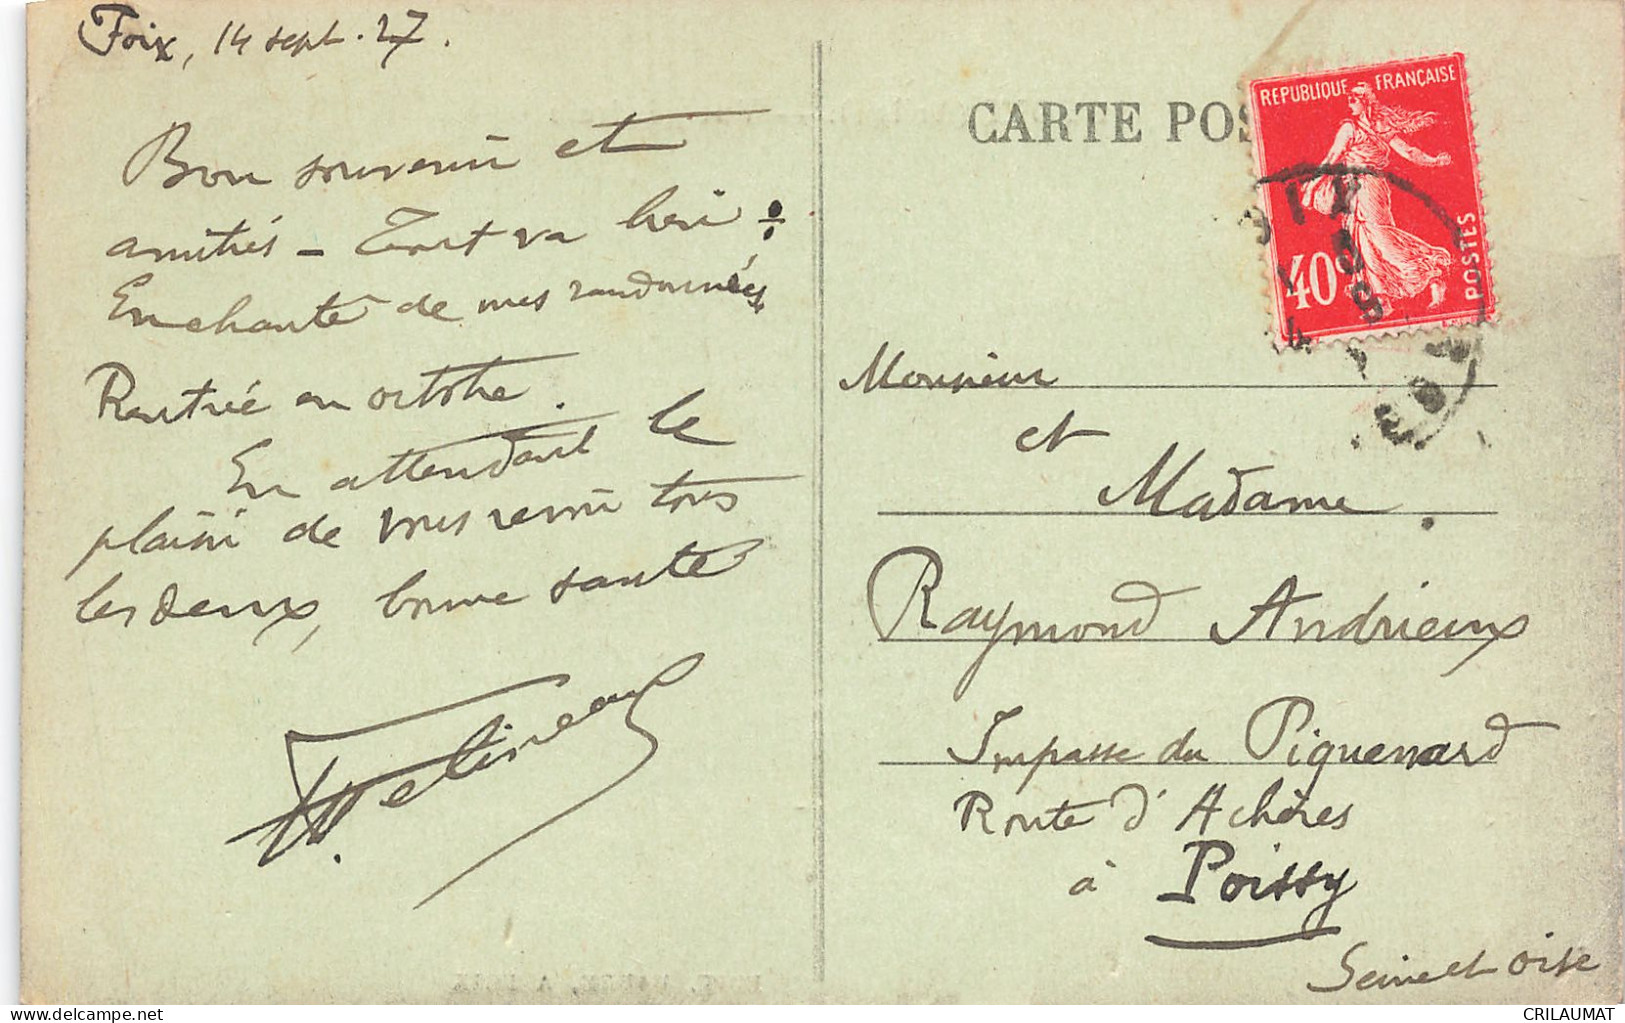 Foix, 14 sept. 27.
Bon souvenir et
amitiés - Tout va bien :
Enchanté de mes randonnées
Rentrée en octobre.
En attendant le
plaisir de vous revoir tous
les deux, bonne santé
CARTE POS
REPUBLIQUE FRANÇAISE
40c
POSTES
Monsieur
et
Madame.
Raymond Andrieux
Impasse du Piquenard
Route d'Achères
à Poissy
Seine et Oise
CRILAUMAT